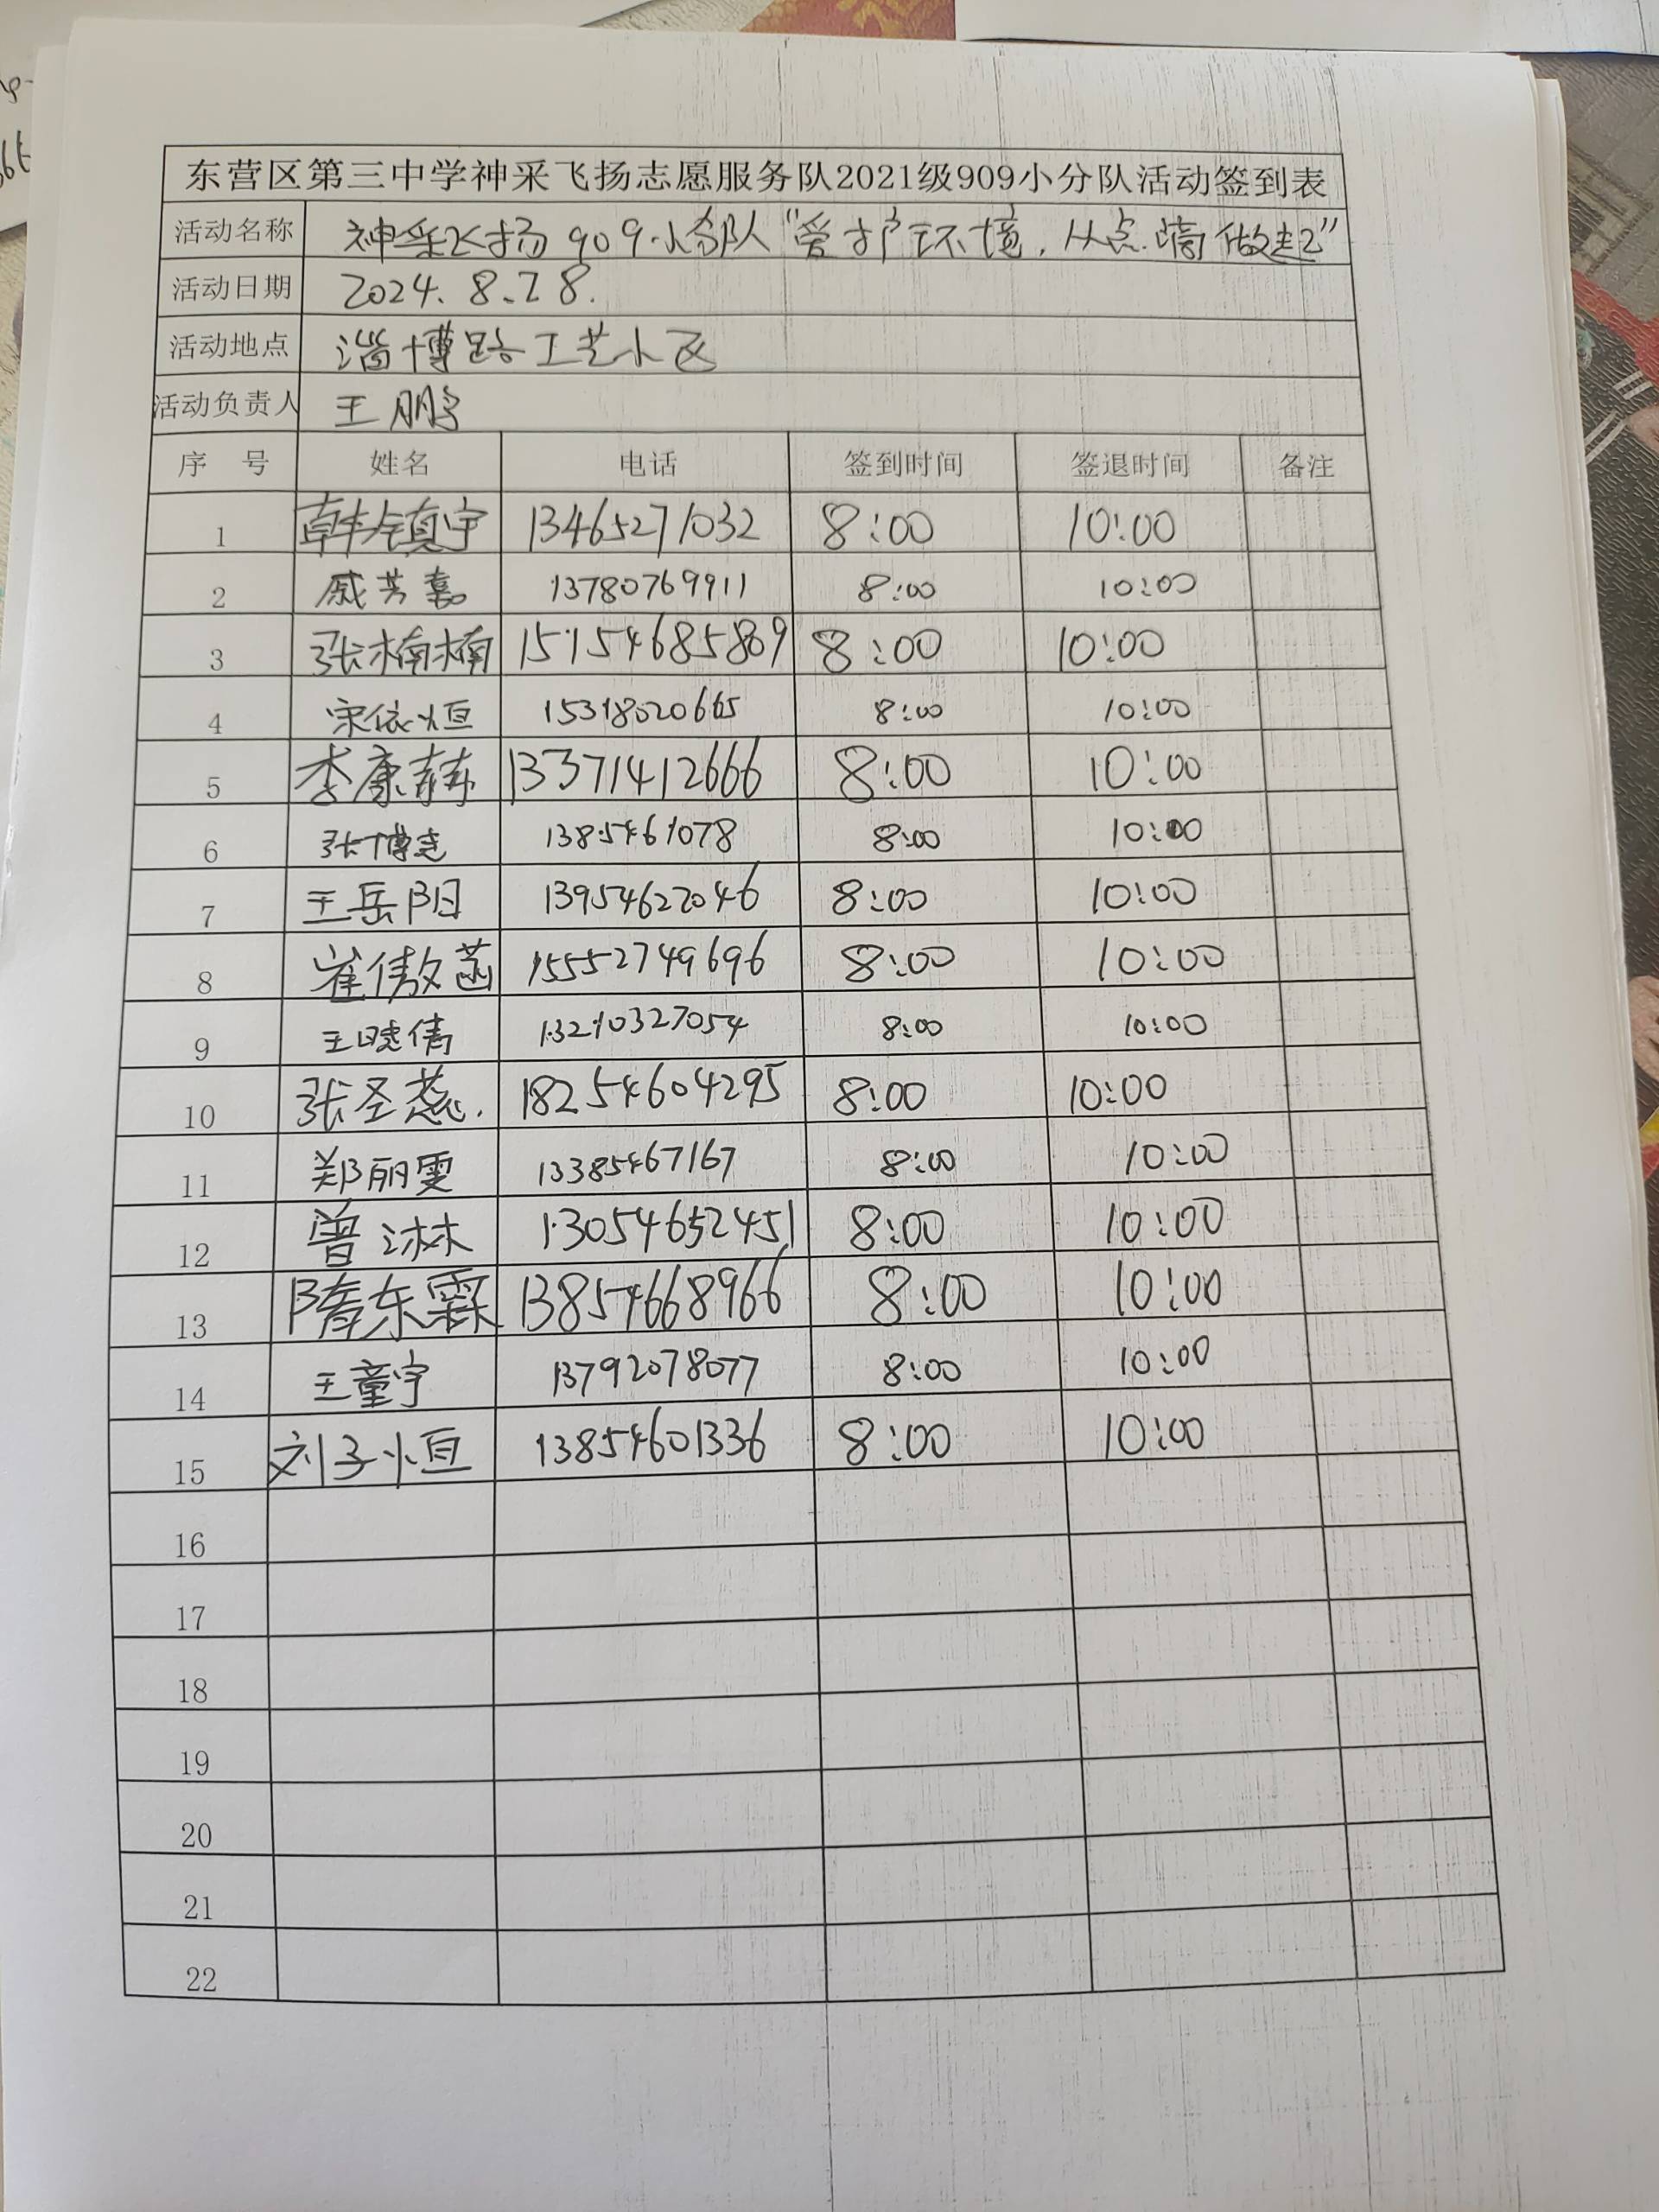 东营区第三中学神采飞扬志愿服务队2021级909小分队活动签到表
活动名称 神采飞扬909小分队"爱护环境，从点滴做起"
活动日期 2024.8.28.
活动地点 淄博路工艺小区
活动负责人 王鹏宇
序 号 姓名 电话 签到时间 签退时间 备注
1 韩镇宇 13465271032 8:00 10:00
2 戚芳嘉 13780769911 8:00 10:00
3 张楠楠 15154685809 8:00 10:00
4 宋依恒 15318020665 8:00 10:00
5 李康赫 13371412666 8:00 10:00
6 张博 1385461078 8:00 10:00
7 王岳阳 13954622046 8:00 10:00
8 崔傲菡 15552749696 8:00 10:00
9 王晓倩 13210327054 8:00 10:00
10 张圣蕊. 18254604295 8:00 10:00
11 郑丽雯 13385467167 8:00 10:00
12 曾沐林 13054652451 8:00 10:00
13 隋东霖 13854668966 8:00 10:00
14 王童宇 13792078077 8:00 10:00
15 刘子恒 13854601336 8:00 10:00
16
17
18
19
20
21
22